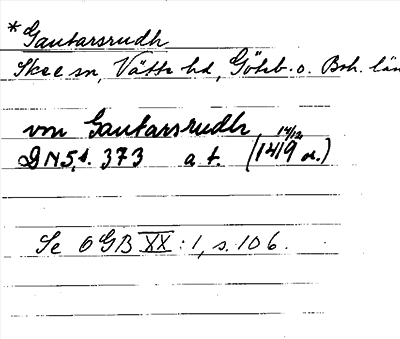 *Gautarsrudh
Skee sn, Vätte hd, Göteb. o. Boh. län
von Gautarsrudh 14/12
DN 5, s. 373 a. t. (1419 or.)
Se OGB XX:1, s. 106.